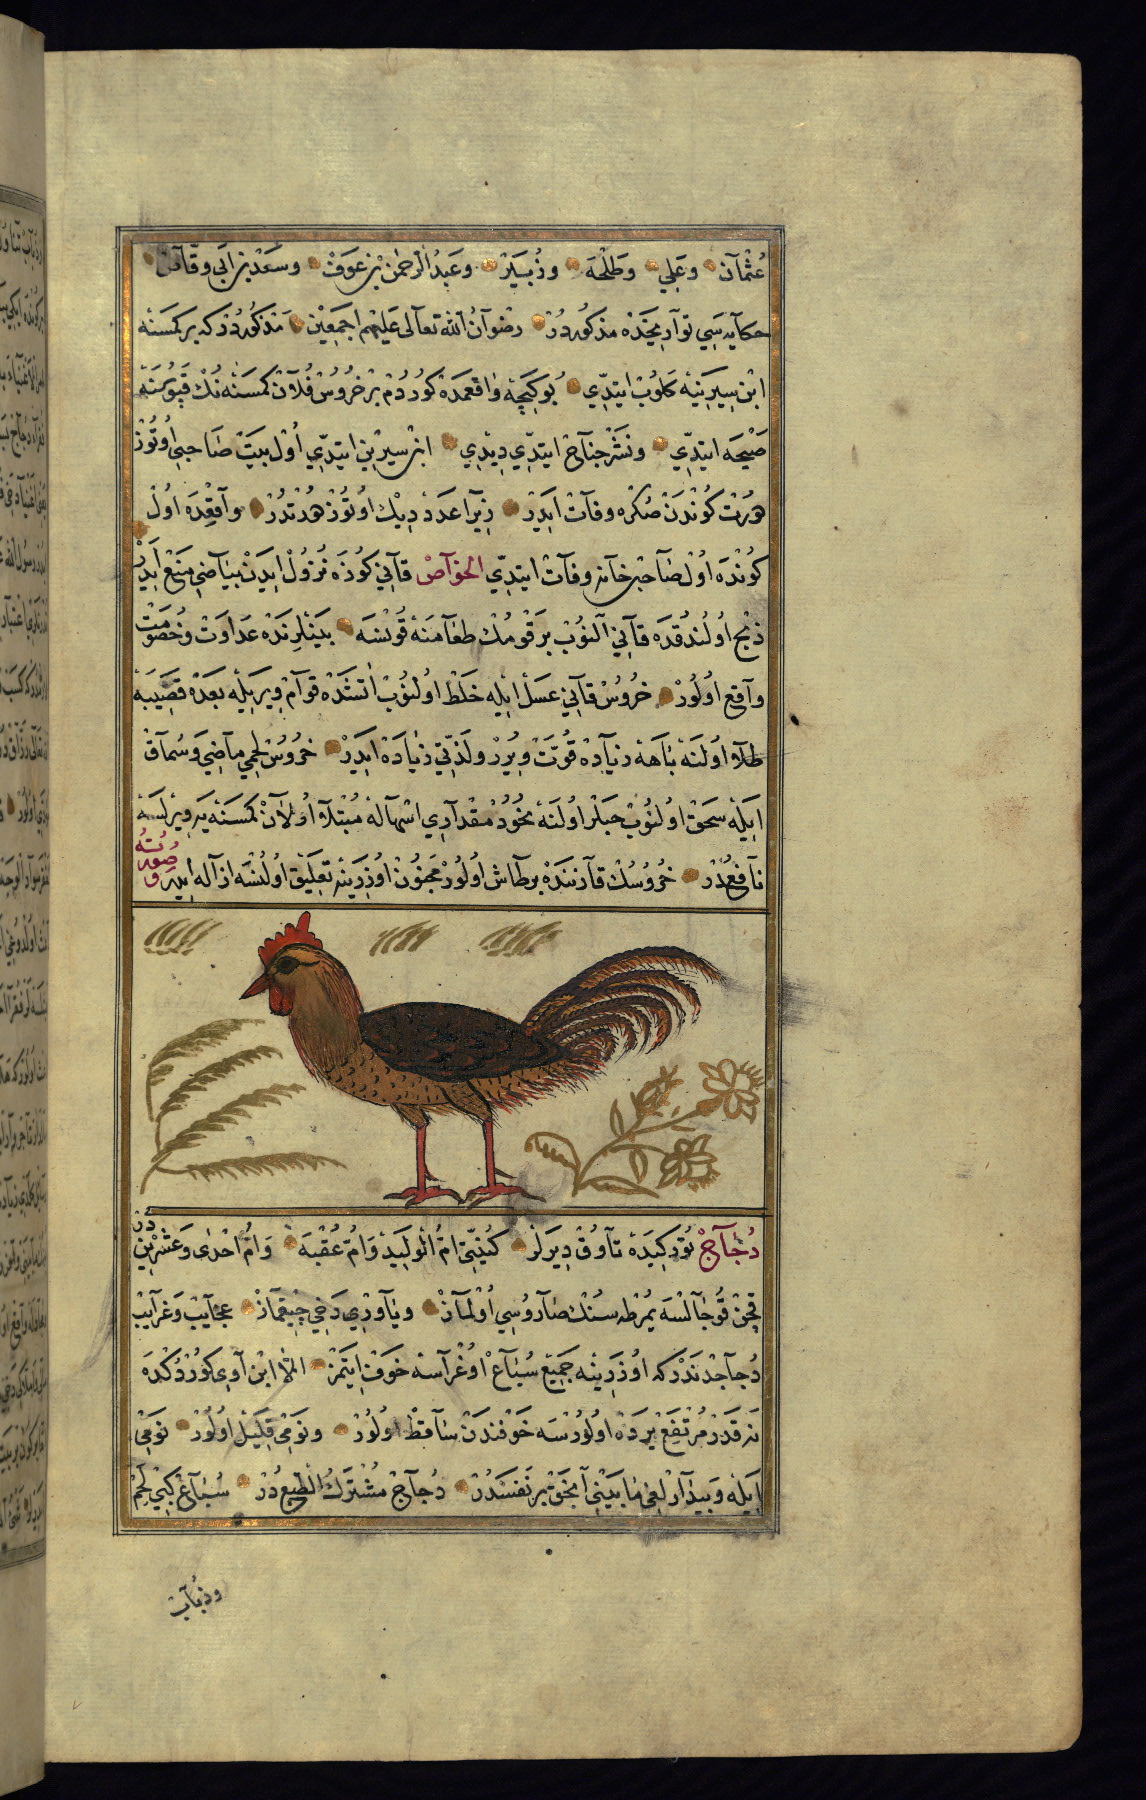 عُثْمَان وَعَلِي وَطَلْحَه وزُبَيْر وعَبْدُ الرَّحْمٰن بْن عَوَفْ وسَعْد بن ابَى وقّاصْ
حكايه سِي توارِيخْده مذكُورْدُرْ رضْوَانُ الله تعَالى عَلَيْهِم اجْمَعِيْن مَذكُوردُرْ كه بركمسَنه
ابْن سِيرِينه كَلُوبْ ايتدِّي بُوكيجه واقعمده كُورْدُمْ بر خُرُوسْ فُلان كمسَنه نُكْ قَپُوسنه
صَيْحَه ايتدِّي ونَشْر جناح ايتدِّي دِيدِي ابن سيرين ايتدِّي اوُل بيت صَاحبى اوُتُوز
دُرْت كُونْدَنْ صُكْره وفات ايدَرْ زيرَا عدَد دِيك اوُتُوز دُرْتدُرْ واقِعِده اوُل
كُونْده اوُل صَاحب خانه وفات ايتدِّي الخوَاصْ قانِي كُوزه نُزُولْ ايدَنْ بيَاضِي منع ايدرْ
ذبح اوُلُندُقده قانِي النُوبْ بر قَومُكْ طعَامنه قُونسَه بينلرِنده عَداوَت وخُصُومَتْ
واقِع اوُلُورْ خرُوسْ قانِي عسَل ايله خَلْط اوُلنُوبْ اتشده قوَام ويريله بعْده قضَيبه
طلا اوُلنه باهه زياده قُوّت ويرر ولذّتِي زياده ايدَرْ خرُوسْ لحمِي ماضِي وسُماق
ايله سحق اوُلنُوبْ حبلر اوُلنه نخُود مقْدارِي اسْهاله مُبْتلا اوُلان كمسَنه يه ويرلسه
نافعدُرْ خرُوسُكْ قارننده بر طاش اوُلُورْ مجنُون اوُزرينه تعليق اوُلنسه ازاله ايدر
صُورَتُهُ
دُجَاجْ تُوركيده تاوُق ديرلر كنيتِى امُّ الْوَلِيد وَامُّ عُقْبَه وَامُّ احْدَى وَعشْرِين دُرْ
قچن قُوجالسه يُمُرْطه سنُكْ صَارُوسِي اوُلماز وياوْرِي دَخِي چيقماز عجايب وغَرايب
دُجاجدندر كه اوُزرينه جميع سُباع اوُغْراسه خوف ايتمز امّا ابن اوِى كوردُكده
نه قدر مُرْتفِع يردَه اوُلُورسه خوفندن ساقط اوُلُورْ ونَومِى قليل اوُلُورْ نَومِى
ايله وبيدارلغِى مابينِى انجق بر نفسدُرْ دُجاج مُشْتركُ الطّبع دُرْ سُباع كبِى لحْم
وذُباب